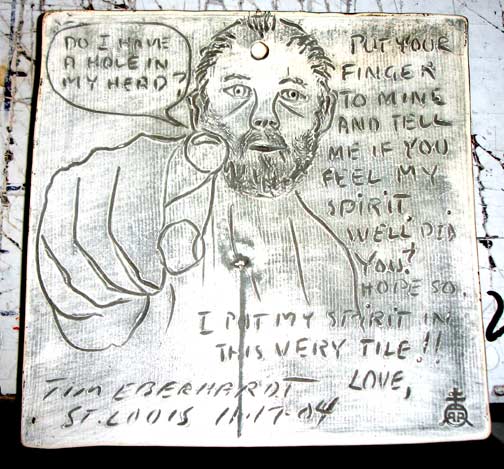 DO I HAVE
A HOLE IN
MY HEAD?
PUT YOUR
FINGER
TO MINE
AND TELL
ME IF YOU
FEEL MY
SPIRIT,
WELL DID
YOU?
HOPE SO.
I PUT MY SPIRIT IN
THIS VERY TILE!!
LOVE,
TIM EBERHARDT
ST. LOUIS 11-17-04